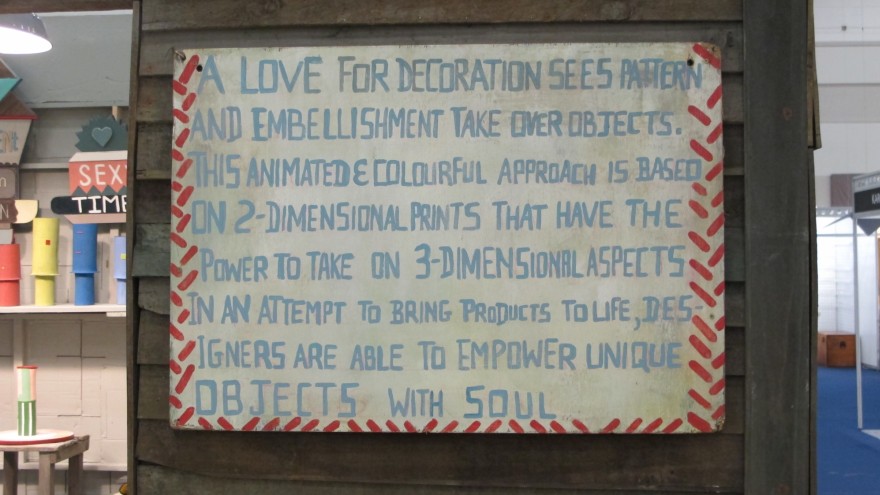 A LOVE FOR DECORATION SEES PATTERN
AND EMBELLISHMENT TAKE OVER OBJECTS.
THIS ANIMATED & COLOURFUL APPROACH IS BASED
ON 2-DIMENSIONAL PRINTS THAT HAVE THE
POWER TO TAKE ON 3-DIMENSIONAL ASPECTS
IN AN ATTEMPT TO BRING PRODUCTS TO LIFE, DES-
IGNERS ARE ABLE TO EMPOWER UNIQUE
OBJECTS WITH SOUL
SEXY
TIME